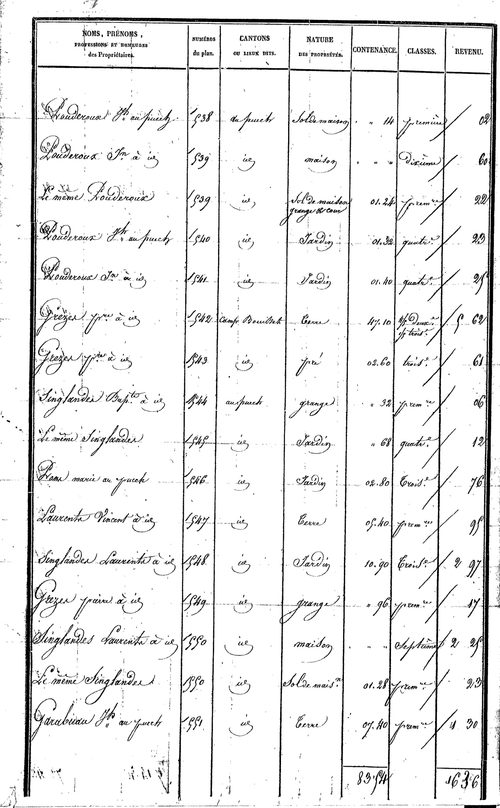 NOMS, PRÉNOMS, PROFESSIONS ET DEMEURES des Propriétaires. NUMÉROS du plan. CANTONS OU LIEUX DITS. NATURE DES PROPRIÉTÉS. CONTENANCE. CLASSES. REVENU.
Rouderoux Jh. au puech 1538 au puech Sol de maison " 14 première / 02
Rouderoux Jn. à id 1539 id maison " " dixième / 60
Le même Rouderoux 1539 id Sol de maison grange & cour 01.24 prem.re / 22
Rouderoux Jh. au puech 1540 id Jardin 01.32 quatr.e / 23
Rouderoux Jn. à id 1541 id Jardin 01.40 quatr.e / 25
Grèzes pre à id 1542 Camp Terre 47.10 5 62
Grèzes pre à id 1543 id pré 02.60 trois.e / 61
Singlandes Bap.te à id 1544 au puech grange " 32 prem.re / 06
Le même Singlandes 1545 id Jardin " 68 quatr.e / 12
marie au puech 1546 id Jardin 02.80 Trois.e / 76
Laurents Vincent à id 1547 id Terre 05.40 prem.re / 95
Singlandes Laurents à id 1548 id Jardin 10.90 Trois.e / 2 97
Grezes pierre à id 1549 id grange " 96 prem.re / 17
Singlandes Laurents à id 1550 id maison " " Septième 2 25
Le même Singlandes 1550 id Sol de mais.n 01.28 prem.re / 23
Jh. au puech 1551 id Terre 07.40 prem.re / 1 30
83 54 16 36